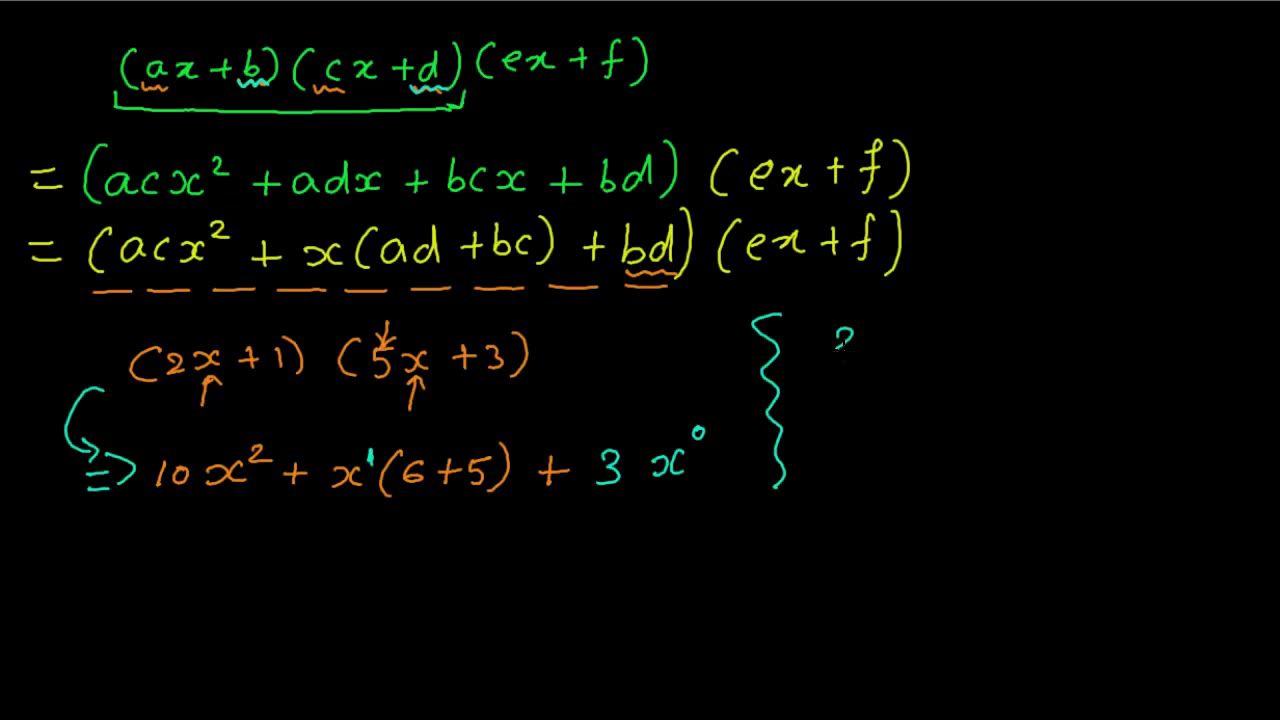 (ax+b)(cx+d)(ex+f)
=(acx²+adx+bcx+bd)(ex+f)
=(acx²+x(ad+bc)+bd)(ex+f)
(2x+1)(5x+3)
2
=> 10x²+x¹(6+5)+3x⁰